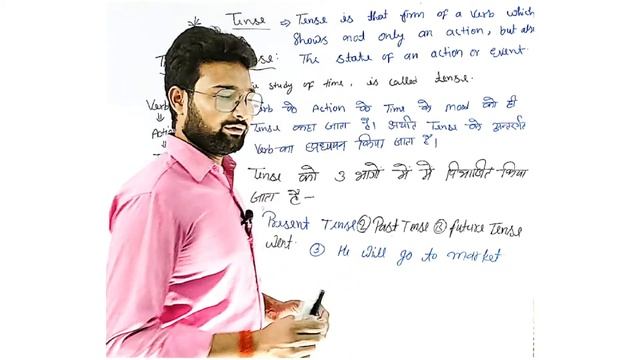 Tense ⇒ Tense is that form of a verb which
shows not only an action, but also
The state of an action or event
study of time, is called tense.
Verb के Action के Time के Mood को ही
Tense कहा जाता है। अर्थात Tense के अन्तर्गत
Verb का अध्ययन किया जाता है।
Tense को 3 भागों में में विभाजित किया
जाता है —
Present Tense ② Past Tense ③ future Tense
went.
③ He will go to market